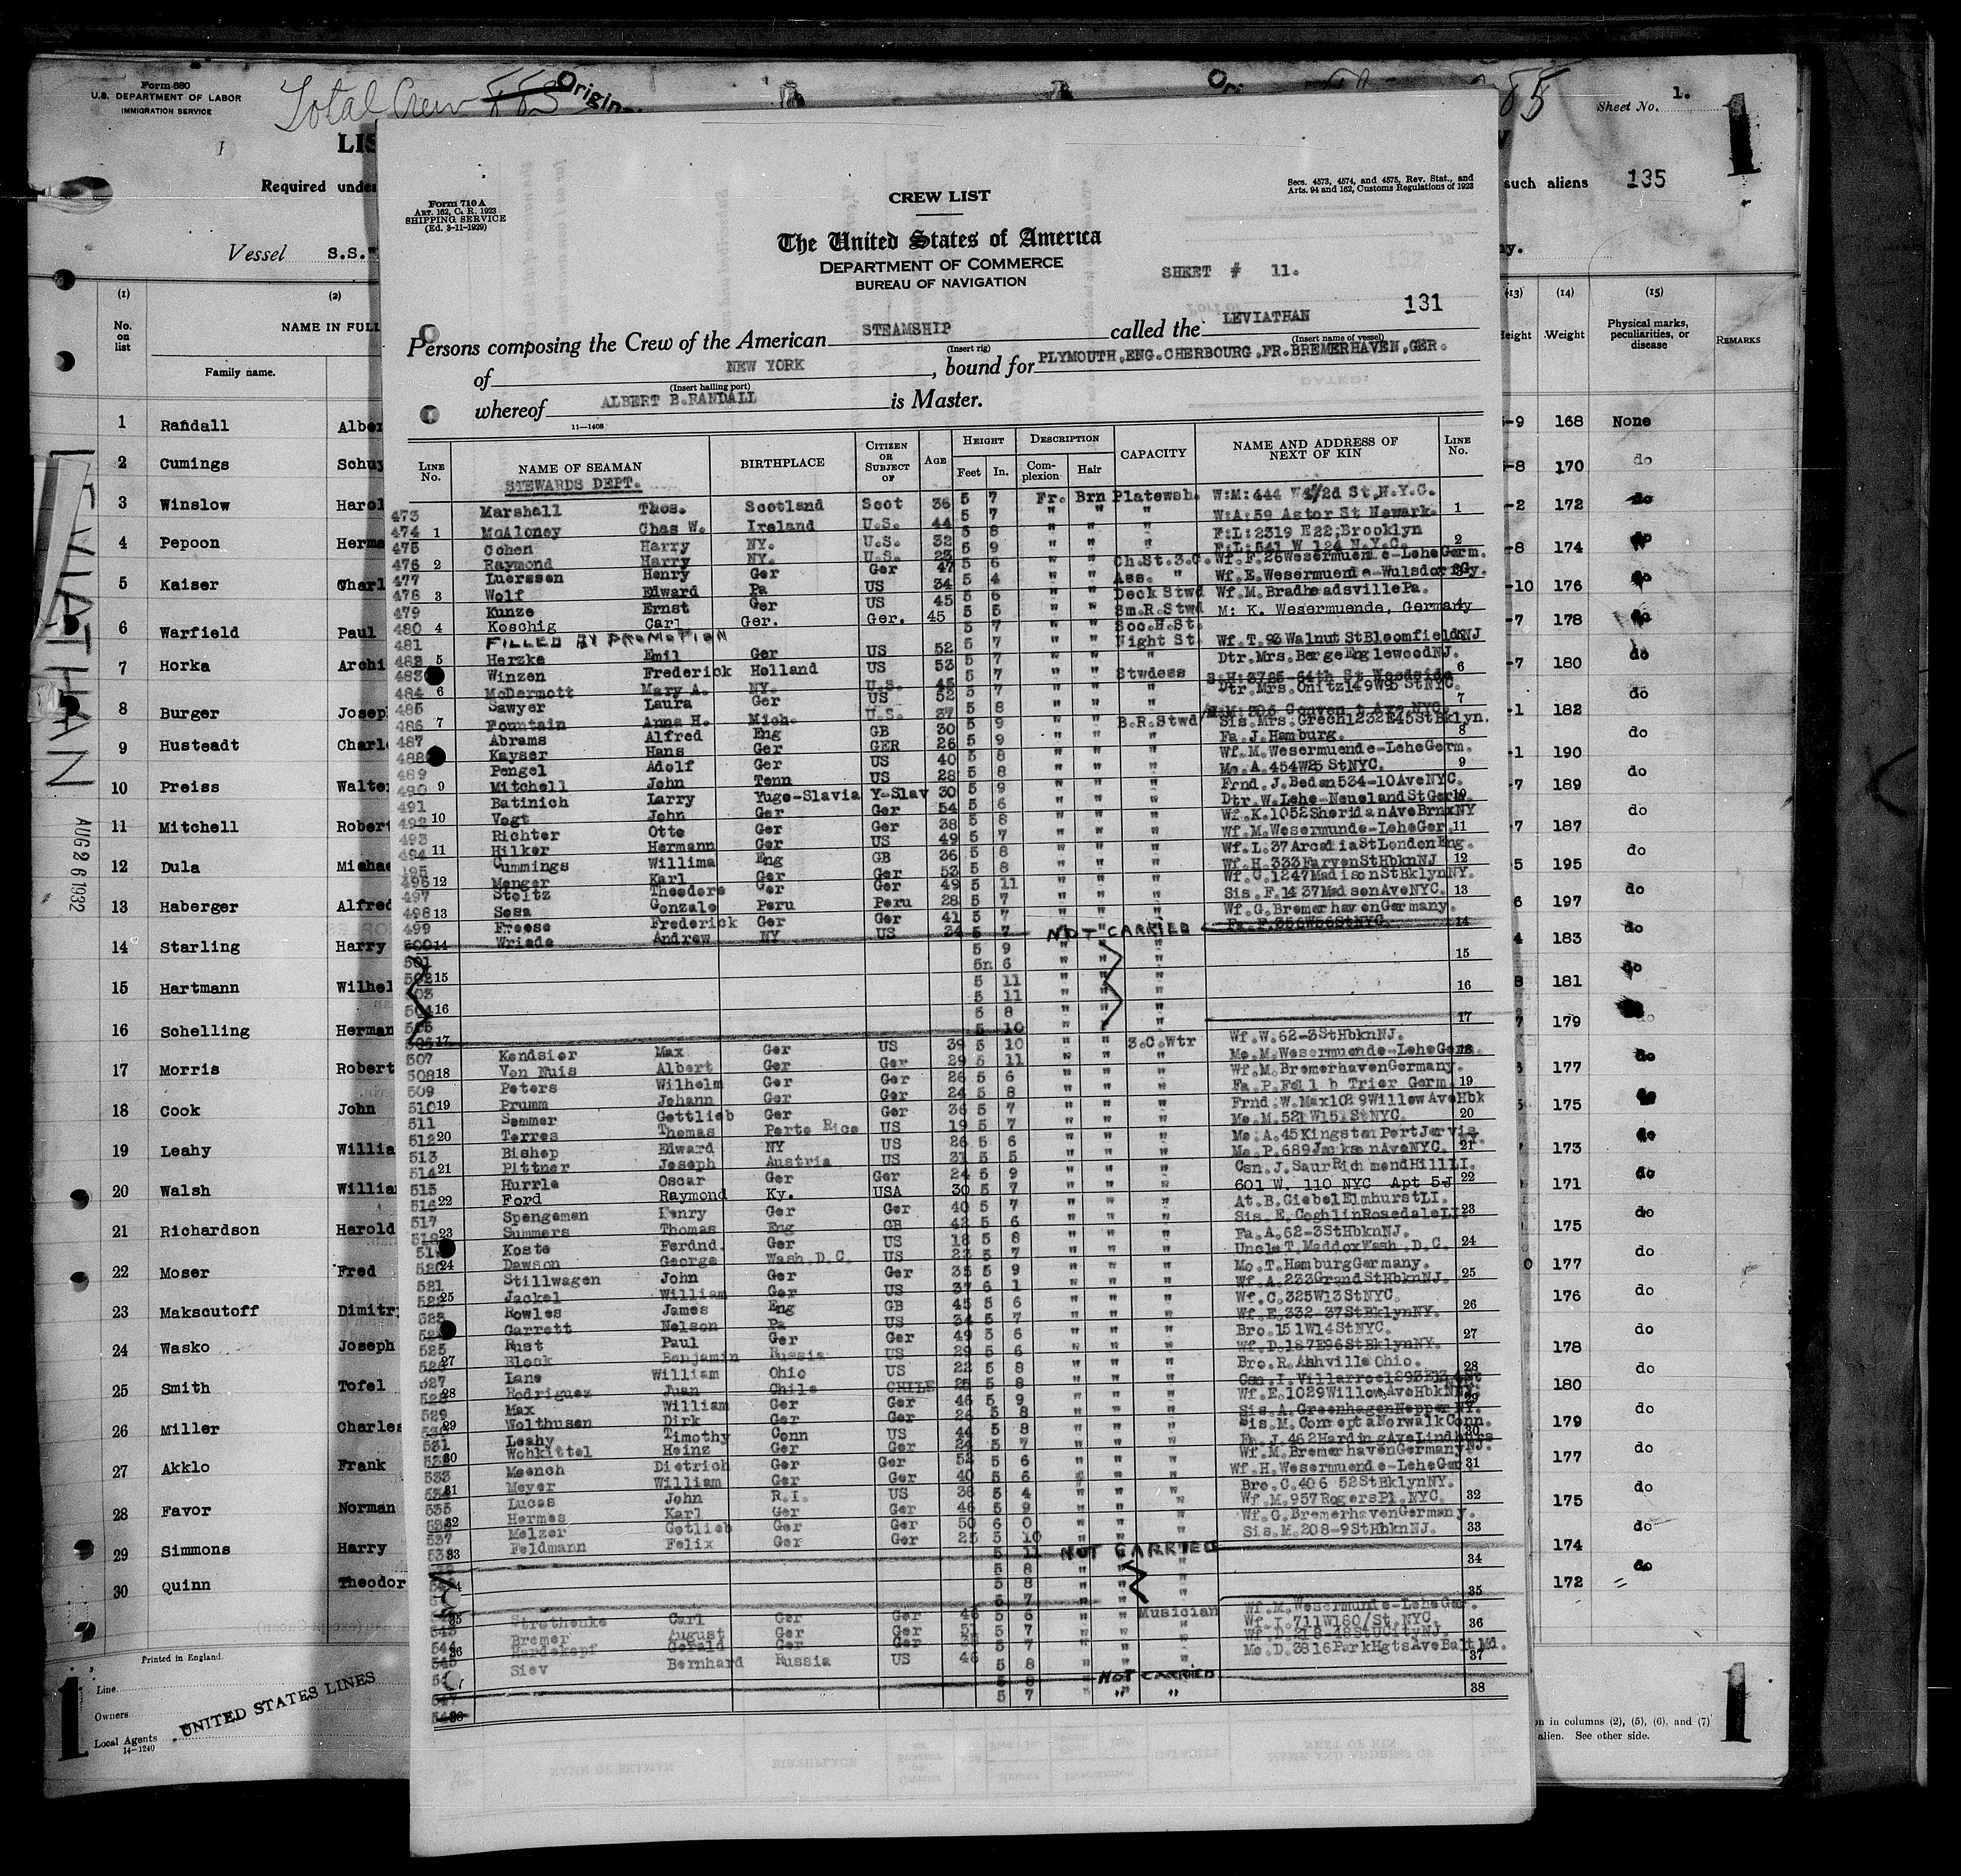 Form 680
U.S. DEPARTMENT OF LABOR
IMMIGRATION SERVICE
Total Crew
Sheet No. 1.
1
Required under
such aliens 135
Vessel S.S.
(1) (2) (13) (14) (15)
No. on list NAME IN FULL Height Weight Physical marks, peculiarities, or disease REMARKS
Family name.
1 Randall Alber 168 None
2 Cumings Schuy 170 do
3 Winslow Harol 172 do
4 Pepoon Herma 174 do
5 Kaiser Charl 176 do
6 Warfield Paul 178 do
7 Horka Archi 180 do
8 Burger Josep 182 do
9 Husteadt Charl 190 do
10 Preiss Walte 189 do
11 Mitchell Rober 187 do
12 Dula Micha 195 do
13 Haberger Alfred 197 do
14 Starling Harry 183 do
15 Hartmann Wilhel 181 do
16 Schelling Herman 179 do
17 Morris Robert 177 do
18 Cook John 175 do
19 Leahy Willia 173 do
20 Walsh Willia 171 do
21 Richardson Harold 175 do
22 Moser Fred 177 do
23 Makscutoff Dimitr 176 do
24 Wasko Joseph 178 do
25 Smith Tofel 180 do
26 Miller Charles 179 do
27 Akklo Frank 177 do
28 Favor Norman 175 do
29 Simmons Harry 174 do
30 Quinn Theodor 172 do
LEVIATHAN
AUG 26 1932
Printed in England.
Line
Owners
Local Agents
14-1240
UNITED STATES LINES
1
in columns (2), (5), (6), and (7)
alien. See other side.
1
Form 710 A
Art. 162, C. R. 1923
SHIPPING SERVICE
(Ed. 3-11-1929)
CREW LIST
Secs. 4573, 4574, and 4575, Rev. Stat., and
Arts. 94 and 162, Customs Regulations of 1923
The United States of America
DEPARTMENT OF COMMERCE
BUREAU OF NAVIGATION
SHEET # 11.
131
Persons composing the Crew of the American STEAMSHIP called the LEVIATHAN
(Insert rig) (Insert name of vessel)
of NEW YORK, bound for PLYMOUTH,ENG.CHERBOURG,FR.BREMERHAVEN,GER.
(Insert hailing port)
whereof ALBERT B.RANDALL is Master.
11—1408
LINE No. NAME OF SEAMAN BIRTHPLACE CITIZEN OR SUBJECT OF AGE HEIGHT Feet In. DESCRIPTION Complexion Hair CAPACITY NAME AND ADDRESS OF NEXT OF KIN LINE No.
STEWARDS DEPT.
473 Marshall Thos. Scotland Scot 36 5 7 Fr. Brn Platewsh. W:M:444 W 42d St,N.Y.C.
474 McAloney Chas W. Ireland U.S. 44 5 7 " " " W:A:59 Astor St Newark.
475 Cohen Harry NY. U.S. 32 5 8 " " " F:L:2319 E22;Brooklyn
476 Raymond Harry NY. U.S. 23 5 9 " " " F:L:541 W 124 N.Y.C.
477 Luerssen Henry Ger Ger 47 5 6 " " Ch.St.3.C. Wf.F.26Wesermuende-LeheGerm.
478 Wolf Edward Pa US 34 5 4 " " Ass. " Wf.E.Wesermuende-WulsdorfGy.
479 Kunze Ernst Ger US 45 5 6 " " Deck Stwd Wf.M.BradheadsvillePa.
480 Koschig Carl Ger. Ger. 45 5 5 " " Sm.R.Stwd M: K. Wesermuende, Germany
481 FILLED BY PROMOTION 5 7 " " Soc.H.St.
482 Herzke Emil Ger US 52 5 7 " " Night St. Wf.T.93WalnutStBloomfieldNJ
483 Winzen Frederick Holland US 53 5 7 " " " Dtr.Mrs.BergeEnglewoodNJ.
484 McDermott Mary A. NY. U.S. 45 5 7 " " Stwdess S:H:3785-64th St Woodside
485 Sawyer Laura Ger US 52 " " " Dtr.Mrs.Onitz149W95StNYC.
486 Fountain Anna H. Mich. U.S. 37 5 8 " " "
487 Abrams Alfred Eng GB 30 5 9 " " B.R.Stwd Sis.Mrs.Grech1232E45StBklyn.
488 Kayser Hans Ger GER 26 5 9 " " " Fa.J.Hamburg.
489 Pengel Adolf Ger US 40 5 8 " " " Wf.M.Wesermuende-LeheGerm.
490 Mitchell John Tenn US 28 5 8 " " " Mo.A.454W25StNYC.
491 Batinich Larry Yugo-Slavia Y-Slav 30 5 9 " " " Frnd.J.Bedan534-10AveNYC.
492 Vogt John Ger Ger 54 5 6 " " " Dtr.W.Lehe-NeuelandStGerm.
493 Richter Otto Ger Ger 38 5 8 " " " Wf.K.1052SheridanAveBrnxNY
494 Hilker Hermann Ger US 49 5 7 " " " Wf.M.Wesermunde-LeheGer.
495 Cummings Willima Eng GB 36 5 8 " " " Wf.L.37ArcadiaStLondonEng.
496 Menger Karl Ger Ger 53 5 8 " " " Wf.H.333FarvenStHbknNJ
497 Stoltz Theodore Ger Ger 49 5 11 " " " Wf.C.1247MadisonStBklynNY.
498 Sosa Gonzalo Peru Peru 28 5 7 " " " Sis.F.1437MadsonAveNYC.
499 Freese Frederick Ger Ger 41 5 7 " " " Wf.G.BremerhavenGermany.
500 Wriede Andrew NY US 34 5 7 NOT CARRIED Fa.F.356W56StNYC.
501 5 9 " " "
502 5 6 " " "
503 5 11 " " "
504 5 11 " " "
505 5 8 " " "
506 5 10 " " "
507 Kendsior Max Ger US 39 5 10 " " 3.C.Wtr Wf.W.62-3StHbknNJ.
508 Von Nuis Albert Ger Ger 29 5 11 " " " Mo.M.Wesermuende-LeheGerm.
509 Peters Wilhelm Ger Ger 26 5 6 " " " Wf.M.BremerhavenGermany.
510 Prumm Johann Ger Ger 24 5 8 " " " Fa.P.Fell b Trier Germ.
511 Sommer Gottlieb Ger Ger 36 5 7 " " " Frnd.W.Max1029WillowAveHbk
512 Torres Thomas Porto Rico US 19 5 7 " " " Mo.M.521W151StNYC.
513 Bishop Edward NY US 26 5 6 " " " Mo.A.45KingstonPortJervis NY.
514 Pittner Joseph Austria US 21 5 5 " " " Mo.P.689JacksonAveNYC.
515 Hurrle Oscar Ger Ger 24 5 9 " " " Csn.J.SaurRichmondHillLI.
516 Ford Raymond Ky. USA 30 5 7 " " " 601 W. 110 NYC Apt 5J
517 Spengeman Henry Ger Ger 40 5 7 " " " At.B.GiebelElmhurstLI.
518 Summers Thomas Eng GB 42 5 6 " " " Sis.E.CoghlinRosedaleLI.
519 Koste Ferdnd. Ger US 18 5 8 " " " Fa.A.62-3StHbknNJ.
520 Dawson George Wash.D.C. US 23 5 7 " " " UncleT.MaddoxWash.D.C.
521 Stillwagen John Ger Ger 35 5 9 " " " Mo.T.HamburgGermany.
522 Jackel William Ger US 37 6 1 " " " Wf.A.233GrandStHbknNJ.
523 Rowles James Eng GB 45 5 6 " " " Wf.C.325W13StNYC.
524 Garrett Nelson Pa US 34 5 7 " " " Wf.E.332-37StBklynNY.
525 Rust Paul Ger Ger 49 5 6 " " " Bro.151W14StNYC.
526 Block Benjamin Russia US 29 5 6 " " " Wf.D.187E96StBklynNY.
527 Lane William Ohio US 22 5 8 " " " Bro.R.AshvilleOhio.
528 Rodriguez Juan Chile CHILE 25 5 8 " " "
529 Max William Ger Ger 46 5 9 " " " Wf.E.1029WillowAveHbkNNJ.
530 Wolthusen Dirk Ger Ger 26 5 8 " " " Sis.A.GreenhagenNepper NY.
531 Leahy Timothy Conn US 44 5 8 " " " Sis.M.ComreptaNorwalkConn.
532 Wohkittel Heinz Ger Ger 24 5 7 " " " Fa.J.462HardingAveLindhurs NJ.
533 Moench Dietrich Ger Ger 52 5 6 " " " Wf.M.BremerhavenGermany
534 Meyer William Ger Ger 40 5 6 " " " Wf.H.Wesermuende-LeheGer.
535 Lucas John R.I. US 38 5 4 " " " Bro.C.406 52StBklynNY.
536 Hermes Karl Ger Ger 46 5 9 " " " Wf.M.957RogersPl.NYC.
537 Melzer Gotlieb Ger Ger 50 6 0 " " " Wf.G.BremerhavenGermany.
538 Feldmann Felix Ger Ger 25 5 10 " " " Sis.M.208-9StHbknNJ.
5 11 NOT CARRIED
5 8 " " "
5 8 " " "
5 7 " " "
543 Strothenke Carl Ger Ger 46 5 6 " " Musician Wf.M.Wesermunde-LeheGer.
544 Bremer August Ger Ger 51 5 7 " " " Wf.I.711W180/St.NYC.
545 Hardekopf Gerald Ger Ger 5 7 " " " Wf.D.218-48StUCityNJ.
Siev Bernhard Russia US 46 5 8 " " " Mo.D.3816ParkHgtsAveBaltMd.
5 8 NOT CARRIED
5 7 " " "